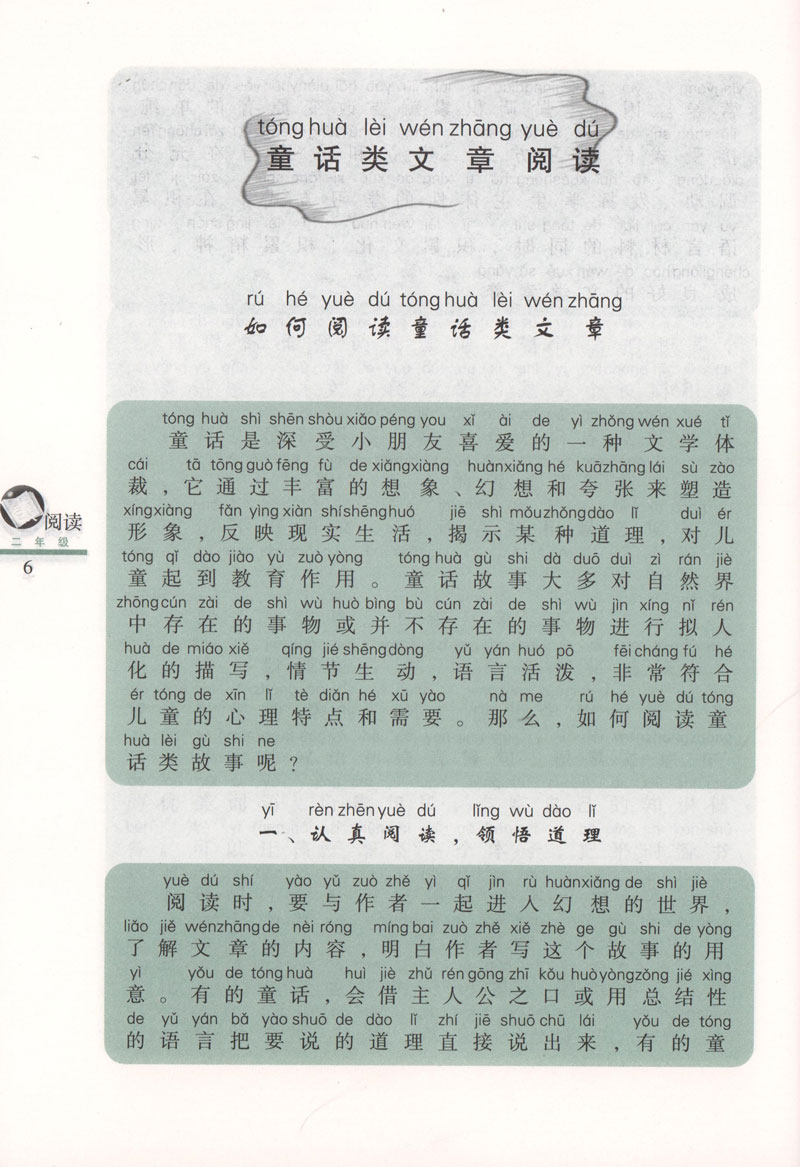 tóng huà lèi wén zhāng yuè dú
童话类文章阅读
rú hé yuè dú tóng huà lèi wén zhāng
如何阅读童话类文章
tóng huà shì shēn shòu xiǎo péng you xǐ ài de yì zhǒng wén xué tǐ
童话是深受小朋友喜爱的一种文学体
cái tā tōng guò fēng fù de xiǎng xiàng huàn xiǎng hé kuā zhāng lái sù zào
裁，它通过丰富的想象、幻想和夸张来塑造
xíng xiàng fǎn yìng xiàn shí shēng huó jiē shì mǒu zhǒng dào lǐ duì ér
形象，反映现实生活，揭示某种道理，对儿
tóng qǐ dào jiào yù zuò yòng tóng huà gù shi dà duō duì zì rán jiè
童起到教育作用。童话故事大多对自然界
zhōng cún zài de shì wù huò bìng bù cún zài de shì wù jìn xíng nǐ rén
中存在的事物或并不存在的事物进行拟人
huà de miáo xiě qíng jié shēng dòng yǔ yán huó pō fēi cháng fú hé
化的描写，情节生动，语言活泼，非常符合
ér tóng de xīn lǐ tè diǎn hé xū yào nà me rú hé yuè dú tóng
儿童的心理特点和需要。那么，如何阅读童
huà lèi gù shi ne
话类故事呢？
yī rèn zhēn yuè dú lǐng wù dào lǐ
一、认真阅读，领悟道理
yuè dú shí yào yǔ zuò zhě yì qǐ jìn rù huàn xiǎng de shì jiè
阅读时，要与作者一起进入幻想的世界，
liǎo jiě wén zhāng de nèi róng míng bai zuò zhě xiě zhè ge gù shi de yòng
了解文章的内容，明白作者写这个故事的用
yì yǒu de tóng huà huì jiè zhǔ rén gōng zhī kǒu huò yòng zǒng jié xìng
意。有的童话，会借主人公之口或用总结性
de yǔ yán bǎ yào shuō de dào lǐ zhí jiē shuō chū lái yǒu de tóng
的语言把要说的道理直接说出来，有的童
阅读
二年级
6